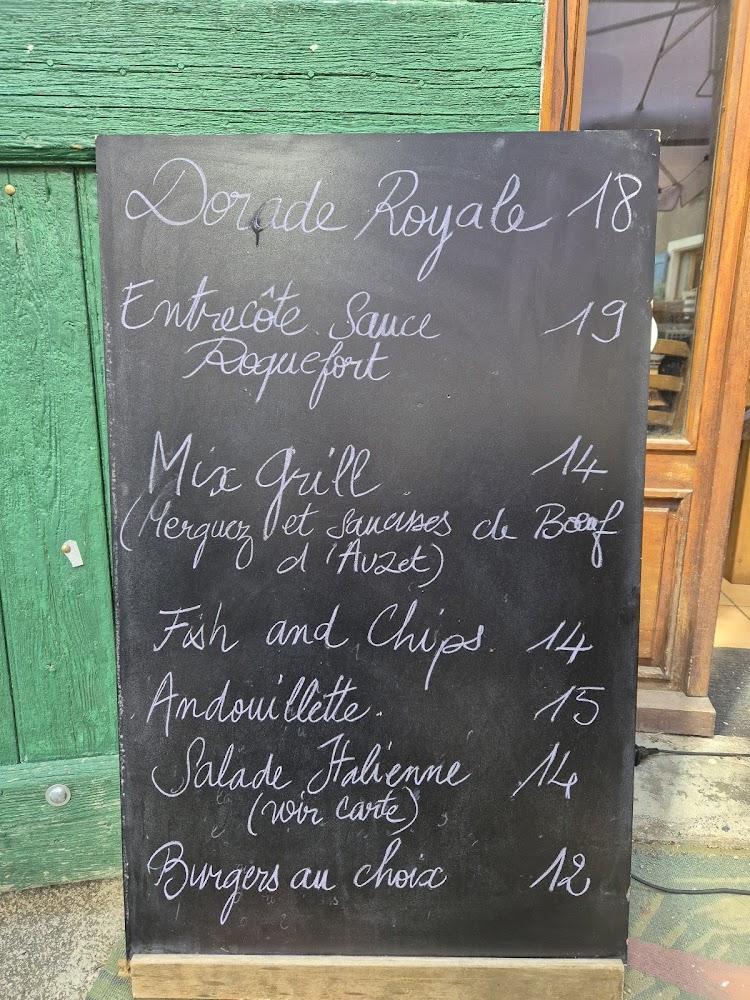 Dorade Royale 18
Entrecôte Sauce 19
Roquefort
Mix Grill 14
(Merguez et Saucisses de Bœuf
d'Auzet)
Fish and Chips 14
Andouillette 15
Salade Italienne 14
(voir carte)
Burgers au choix 12